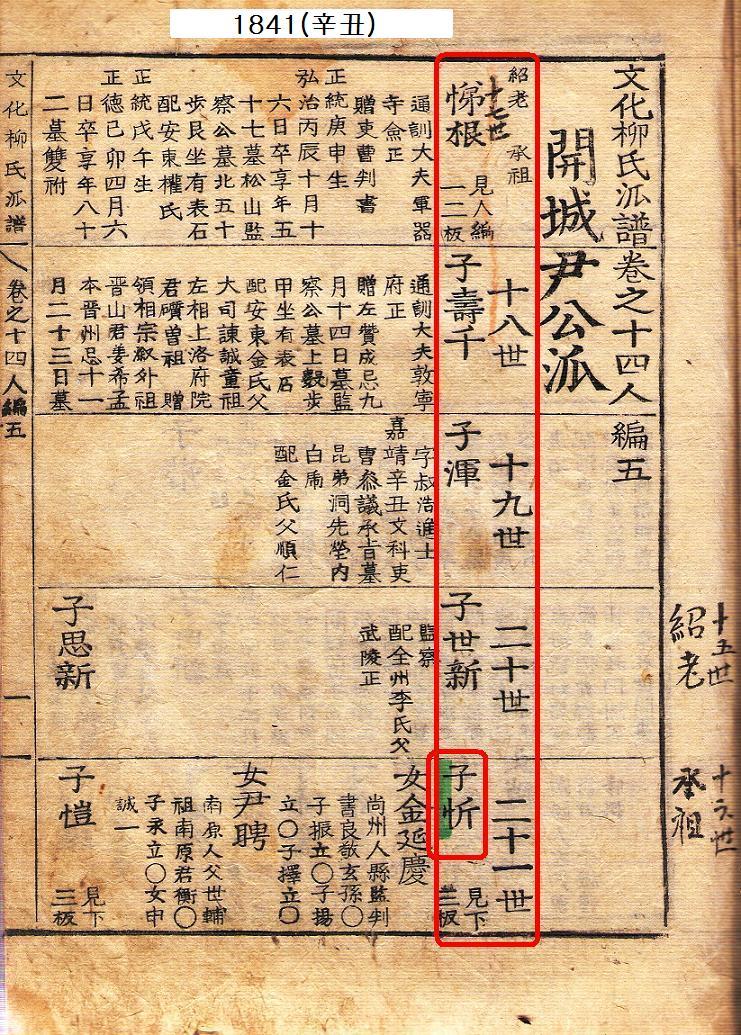 1841(辛丑)
十五世
紹老
十六世
承祖
文化柳氏派譜卷之十四人編五
開城尹公派
紹老 承祖
十七世
悌根
見人編
一二板
通訓大夫軍器
寺僉正
贈吏曹判書
正統庚申生
弘治丙辰十月十
六日卒享年五
十七墓松山監
察公墓北五十
步艮坐有表石
配安東權氏
正統戊午生
正德已卯四月六
日卒享年八十
二墓雙祔
十八世
子壽千
通訓大夫敦寧
府正
贈左贊成忌九
月十四日墓監
察公墓上數步
甲坐有表石
配安東金氏父
大司諫誠童祖
左相上洛府院
君礩曾祖 贈
領相宗淑外祖
晉山君姜希孟
本晉州忌十一
月二十三日墓
十九世
子渾
字叔浩進士
嘉靖辛丑文科吏
曹叅議承旨墓
昆弟洞先塋内
白虎
配金氏父順仁
二十世
子世新
監察
配全州李氏父
武陵正
子思新
二十一世
見下
三板
子忻
女金延慶
尚州人縣監判
書良敬玄孫〇
子振立〇子揚
立〇子擇立〇
女尹聘
南原人父世輔
祖南原君衡〇
子承立〇女申
誠一
子愷
見下
三板
文化柳氏派譜
卷之十四人編五
一